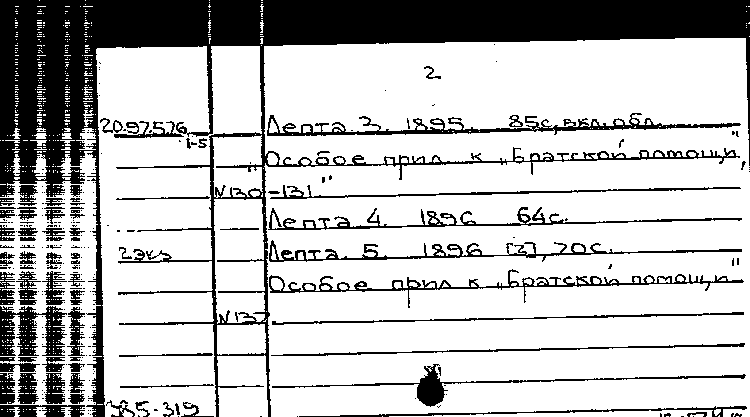 2
20.97.576 Лепта 3. 1895. 85с, вкл. обл.
1-5
„Особое прил. к „Братской помощи",
N130-131"
Лепта 4. 1896 64с.
2экз Лепта. 5. 1896 [2], 70с.
Особое прил к „Братской помощи"
N137.
385-319